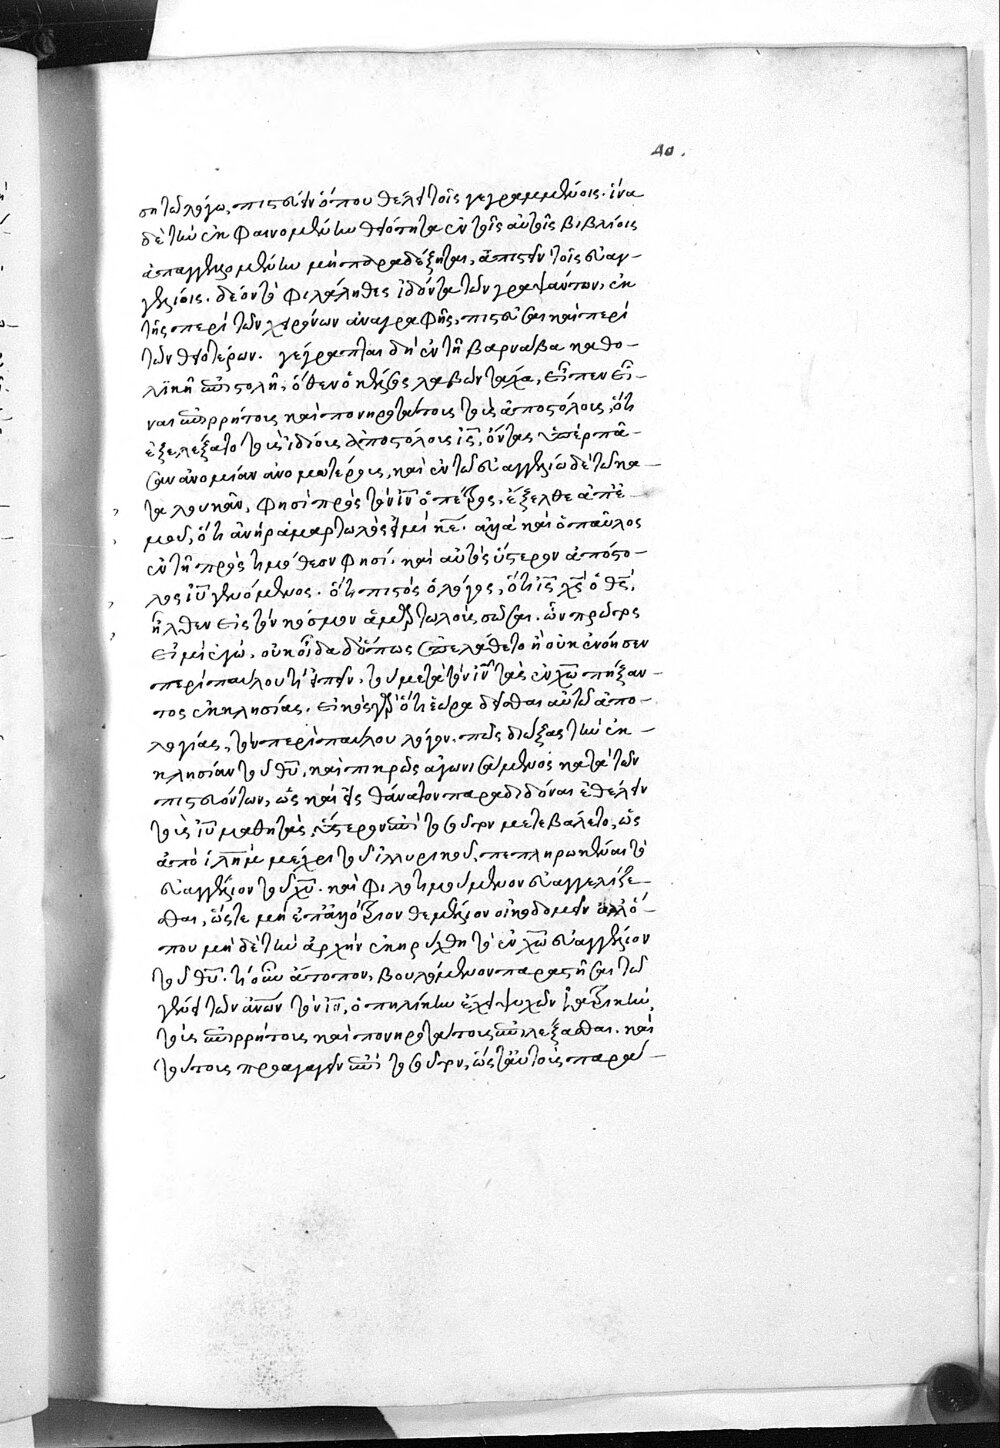 40.
ση τῶ λόγω, πιστεύειν ὅπου θέλει τοῖς γεγραμμένοις. ἵνα
δὲ τὴν ἐκφαινομένην θειότητα ἐν τοῖς αὐτοῖς βιβλίοις
ἀπαγγελλομένην μὴ παραδέξηται, ἀπιστεῖν τοῖς εὐαγ-
γελίοις. δέον τὸ φιλάληθες ἰδόντα τῶν γραψάντων, ἐκ
τῆς περὶ τῶν χειρόνων ἀναγραφῆς, πιστεῦσαι καὶ περὶ
τῶν θειοτέρων. γέγραπται δὴ ἐν τῆ βαρνάβα καθο-
λικῆ ἐπιστολῆ, ὅθεν ὁ κέλσος λαβὼν τάχα, εἶπεν εἶ-
ναι ἐπιρρήτους καὶ πονηροτάτους τοὺς ἀποστόλους, ὅτι
ἐξελέξατο τοὺς ἰδίους ἀποστόλους ἰς, ὄντας ὑπὲρ πᾶ-
σαν ἀνομίαν ἀνομωτέρους, καὶ ἐν τῶ εὐαγγελίω δὲ τῶ κα-
τὰ λουκᾶν, φησὶ πρὸς τὸν ιν ὁ πέτρος, ἔξελθε ἀπ' ἐ-
μοῦ, ὅτι ἀνὴρ ἁμαρτωλός εἰμι κε. ἀλλὰ καὶ ὁ παῦλος
ἐν τῆ πρὸς τιμόθεον φησὶ, καὶ αὐτὸς ὕστερον ἀπόστο-
λος ιυ γενόμενος. ὅτι πιστὸς ὁ λόγος, ὅτι ις χς ὁ θς,
ἦλθεν εἰς τὸν κόσμον ἁμαρτωλοὺς σῶσαι. ὧν πρῶτός
εἰμι ἐγώ. οὐκ οἶδα δὲ ὅπως ἐπελάθετο ἢ οὐκ ἐνόησεν
περὶ παύλου τὶ εἰπεῖν, τοῦ μετὰ τὸν ιν τὰς ἐν χω πήξαν-
τος ἐκκλησίας. εἰκὸς γὰρ ὅτι ἑώρα δεῖσθαι αὐτῶ ἀπο-
λογίας, τὸν περὶ παύλου λόγον. πῶς διώξας τὴν ἐκ-
κλησίαν τοῦ θυ, καὶ πικρῶς ἀγωνισάμενος κατὰ τῶν
πιστευόντων, ὡς καὶ εἰς θάνατον παραδιδόναι ἐθέλειν
τοὺς ιυ μαθητάς, ὕστερον ἐπὶ τοσοῦτον μετεβάλετο, ὡς
ἀπὸ ιλημ μέχρι τοῦ ἰλλυρικοῦ, πεπληρωκέναι τὸ
εὐαγγέλιον τοῦ χυ. καὶ φιλοτιμούμενον εὐαγγελίζε-
σθαι, ὥστε μὴ ἐπ' ἀλλότριον θεμέλιον οἰκοδομεῖν ἀλλ' ὅ-
που μὴ δὲ τὴν ἀρχὴν ἐκηρύχθη τὸ ἐν χω εὐαγγέλιον
τοῦ θυ. τί οὖν ἄτοπον, βουλόμενον παραστῆσαι τῶ
γένει τῶν ανων τὸν ιν, ὁπηλίκην ἔχει ψυχῶν ἰατρικὴν,
τοὺς ἐπιρρήτους καὶ πονηροτάτους ἐπιλέξασθαι. καὶ
τούτους προαγαγεῖν ἐπὶ τοσοῦτον, ὥστ' αὐτοὺς παρά-